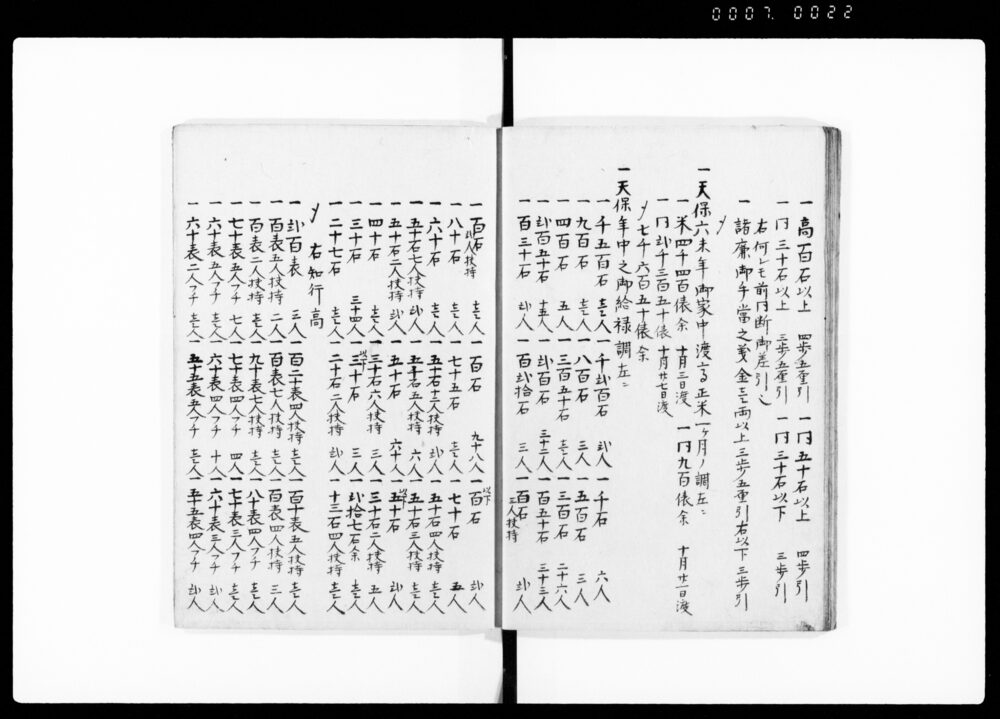 0007. 0022
一 高百石以上 四歩五厘引 一 円五十石以上 四歩引
一 円三十石以上 三歩五厘引 一 円三十石以下 三歩引
右何レモ前円断御差引〆
一 諸廉御手當之義金壱両以上三歩五厘引右以下三歩引
〆
一 天保六未年御家中渡る正米一ヶ月ノ調左ニ
一 米四千四百俵余 十月三日渡 一 円九百俵余 十月廿一日渡
一 円弐千三百五十俵 十月廿七日渡
〆七千六百五十俵余
一 天保年中之御給禄調左ニ
一 千五百石 壱人 一 千弐百石 弐人 一 千石 六人
一 九百石 壱人 一 八百石 三人 一 五百石 三人
一 四百石 五人 一 三百五十石 壱人 一 三百石 二十六人
一 弐百五十石 十五人 一 弐百石 三十二人 一 百五十石 三十三人
一 百三十石 弐人 一 百弐拾石 三人 一 百石 三人扶持 弐人
一 百石 弐人扶持 壱人 一 百石 九十八人 一 百石以下 弐人
一 八十石 壱人 一 七十五石 壱人 一 七十石 五人
一 六十石 壱人 一 五十石十二人扶持 弐人 一 五十石四人扶持 壱人
一 五十石七人扶持 壱人 一 五十石五人扶持 六人 一 五十石三人扶持 壱人
一 五十石二人扶持 弐人 一 五十石 六十人 一 五十石以下 弐人
一 四十石 壱人 一 三十石六人扶持 三人 一 三十石二人扶持 五人
一 三十石 三十四人 一 三十石以下 三人 一 弐拾七石余 壱人
一 二十七石 壱人 一 二十石二人扶持 壱人 一 十三石四人扶持 壱人
〆 右知行高
一 弐百表 三人 一 百二十表四人扶持 壱人 一 百十表五人扶持 壱人
一 百表五人扶持 二人 一 百表七人扶持 壱人 一 百表四人扶持 三人
一 百表二人扶持 壱人 一 九十表七人扶持 壱人 一 八十表四人フチ 壱人
一 七十表五人フチ 七人 一 七十表四人フチ 四人 一 七十表三人フチ 壱人
一 六十表五人フチ 壱人 一 六十表四人フチ 十人 一 六十表三人フチ 弐人
一 六十表二人フチ 壱人 一 五十五表五人フチ 壱人 一 五十五表四人フチ 弐人